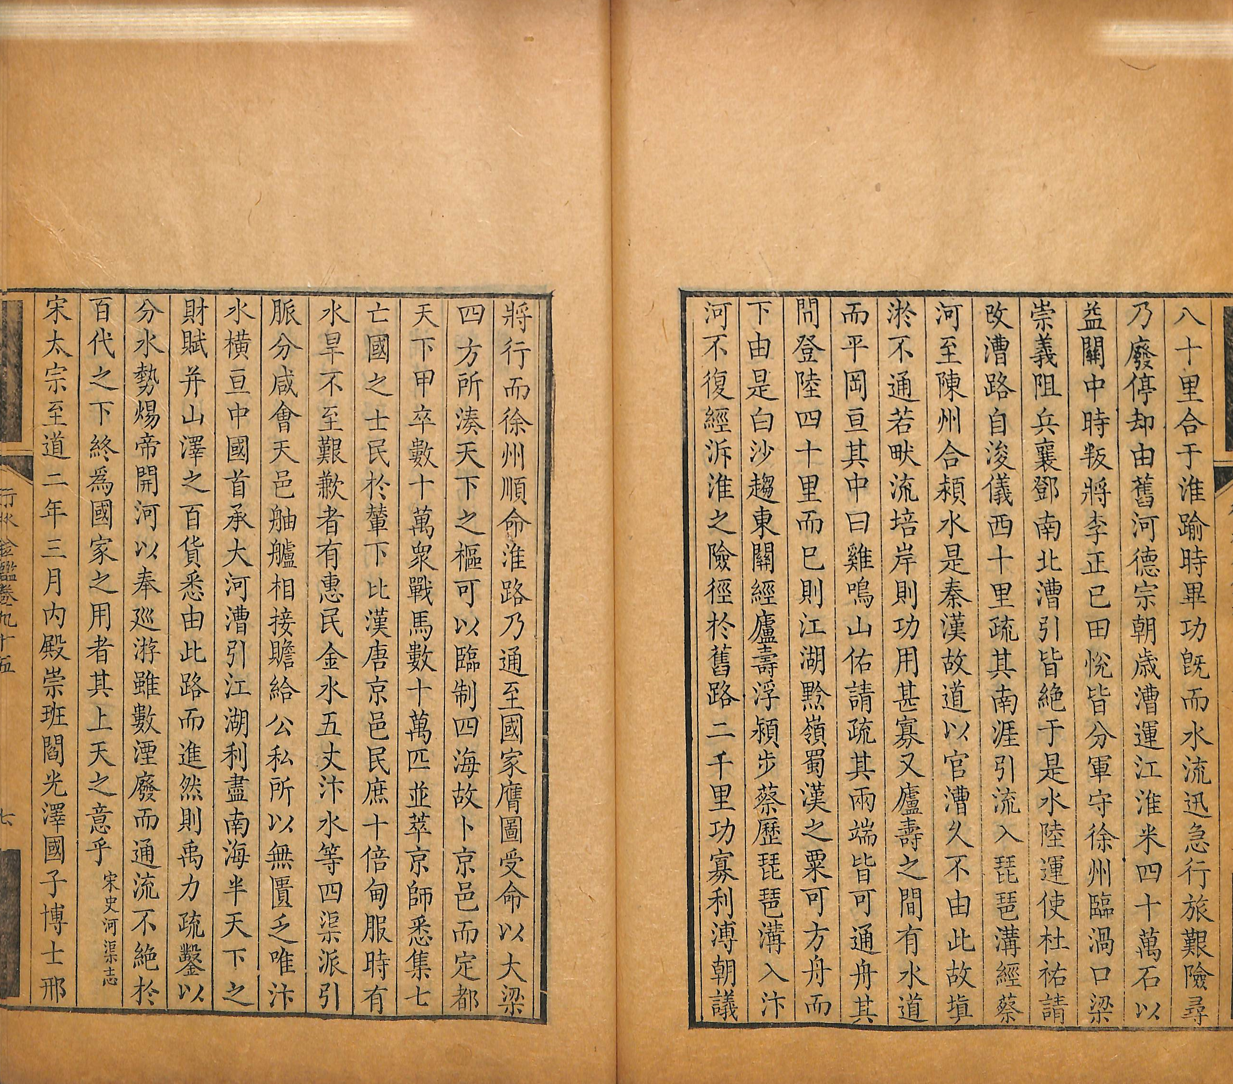 八十里合于淮踰時畢功旣而水流迅急行旅艱險尋
乃廢停却由舊河德宗朝歲漕運江淮米四十萬石以
益關中時叛將李正已田悅皆分軍守徐州臨渦口梁
崇義阻兵襄鄧南北漕引皆絶于是水陸運使杜祐請
改漕路自浚儀西十里疏其南涯引流入琵琶溝經蔡
河至陳州合潁水是秦漢故道以官漕久不由此故塡
淤不通若畎流培岸則功用甚寡又廬壽之間有水道
而平岡亘其中曰雞鳴山佑請疏其兩端皆可通舟其
間登陸四十里而已則江湖黔嶺蜀漢之粟可方舟而
下由是白沙趨東關經廬壽浮潁步蔡歷琵琶溝入汴
河不復經泝淮之險徑於舊路二千里功寡利溥朝議
將行而徐州順命淮路乃通至國家膺圖受命以大梁
四方所湊天下之樞可以臨制四海故卜京邑而定都
天下甲卒數十萬衆戰馬數十萬匹並萃京師悉集七
亡國之士民於輦下比漢唐京邑民庶十倍甸服時有
水旱不至艱歉者有惠民金水五丈汴水等四渠派引
脈分咸會天邑舳艫相接贍給公私所以無匱乏唯汴
水橫亘中國首承大河漕引江湖利盡南海半天下之
財賦并山澤之百貨悉由此路而進然則禹力疏鑿以
分水勢煬帝開河以奉巡游雖數湮廢而通流不絶於
百代之下終爲國家之用者其上天之意乎宋史河渠志
宋太宗至道二年三月内殿崇班閻光澤國子博士邢
行水金鑑卷九十五
七